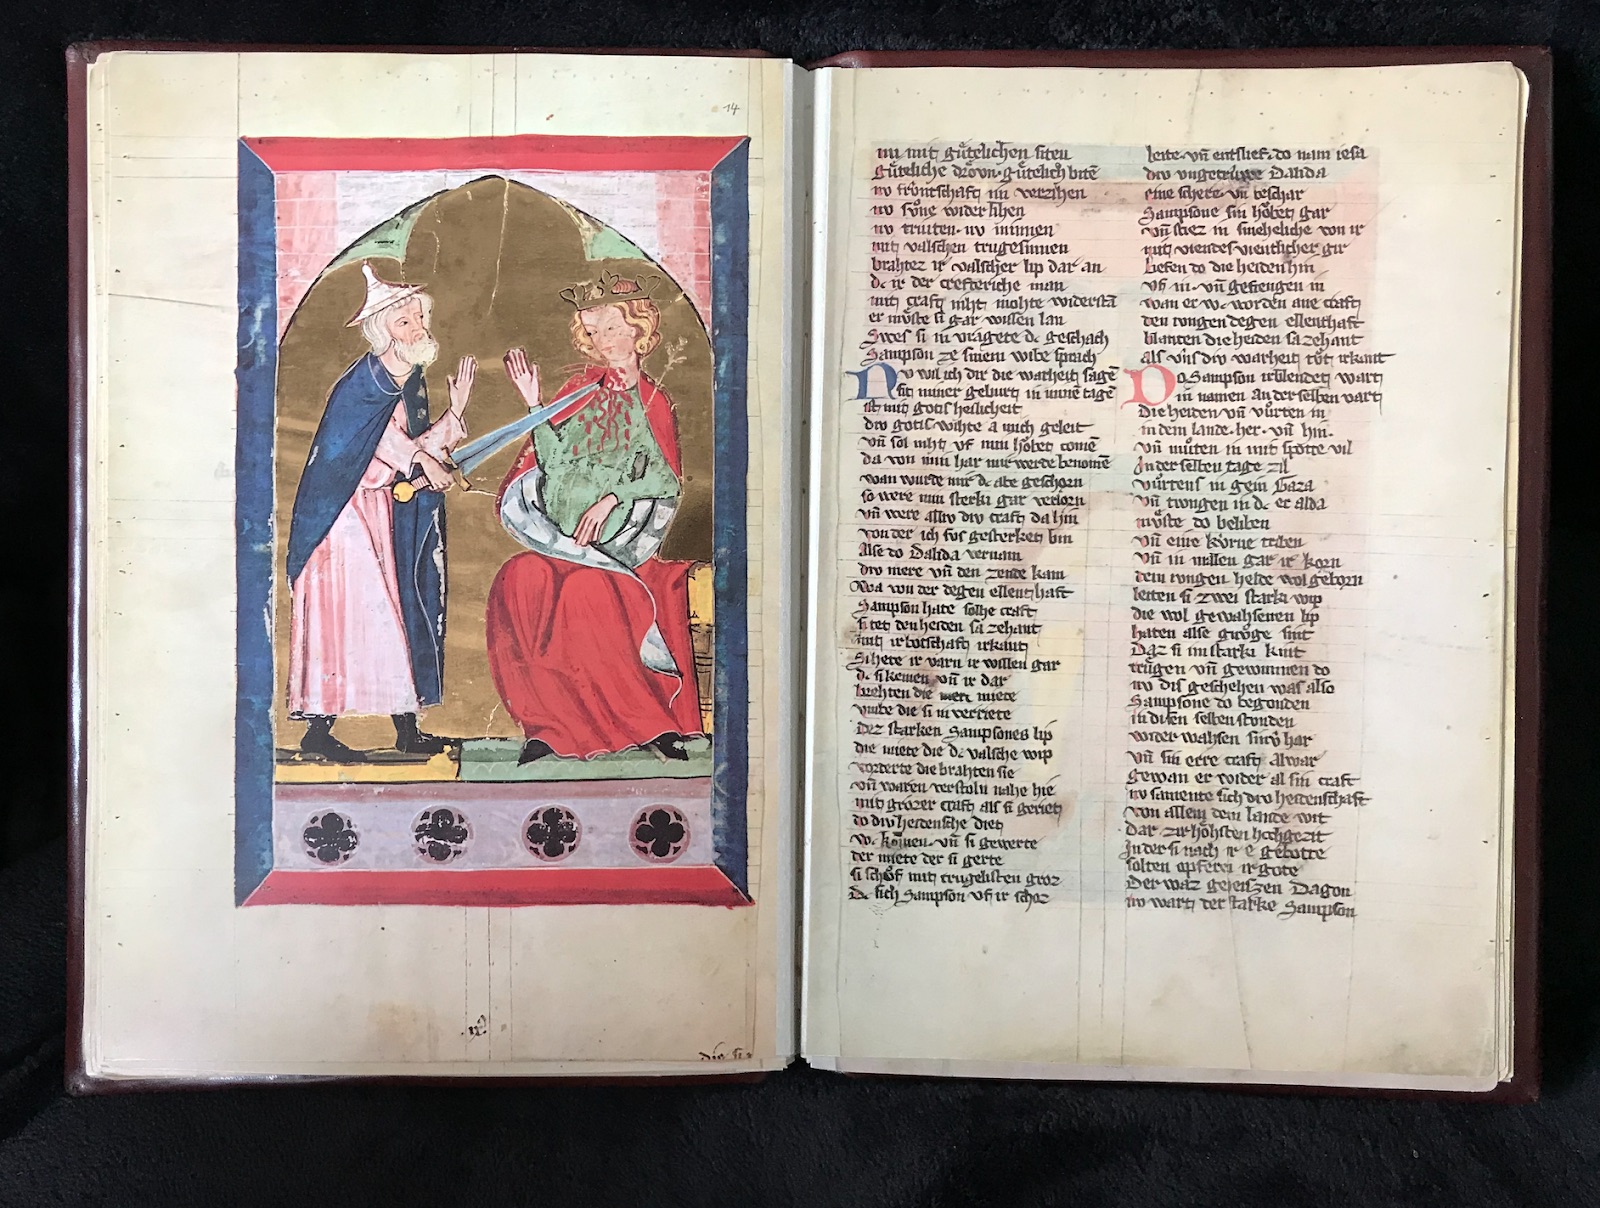 14
im mit gu̍telichen siten
gu̍teliche drovn · gu̍telich bitē
nv frv̍ntschaft im verzihen
nv svͦne wider lihen
nv truten · nv minnen
mit valschen trugesinnen
brahtez ir valscher lip dar an
dc ir der crefteriche man
mit craft niht mohte widerstā
er mv̍ste si gar wissen lan
Swes si in vragete dc geschach
Sampson ze sinem wibe sprach
Nv wil ich dir die warheit sagē
sit miner geburt in minē tagē
ist mit gotis heilicheit
div gotis wihte a mich geleit
vn̄ sol niht vf min ho̍bet comē
da von min har mir werde benomē
wan wurde mir dc abe geschorn
so were min sterki gar verlorn
vn̄ were alliv div craft da hin
von der ich sus gesterket bin
Alse do Dalida vernam
div mere vn̄ den ende kam
Wa von der degen ellenthaft
Sampson hate solhe craft
si tet den heiden sa zehant
mit ir botschaft irkant
Si hete ir varn ir willen gar
dc si kemen vn̄ ir dar
brehten die miete
vmbe die si in verriete
Dez starken Sampsones lip
die miete die dc valsche wip
vorderte die brahten sie
vn̄ waren verstoln nahe hie
mit grozer craft als si geriet
do div heidensche diet
wc komen · vn̄ si gewerte
der miete der si gerte
si schuͦf mit trugelisten groz
Dc sich Sampson vf ir schoz
leite · vn̄ entslief · do nam iesa
div vngetruwe Dalida
eine schere · vn̄ beschar
Sampsone sin ho̍bet gar
vn̄ stiez in smeheliche von ir
mit viendes vientlicher gir
Liefen do die heiden hin
vf in · vn̄ gefiengen in
wan er wc worden ane craft
den iungen degen ellenthaft
blanten die heiden sa zehant
als vns div warheit tuͦt irkant
Do Sampson irblendet wart
in namen an der selben vart
Die heiden vn̄ vu̍rten in
in dem lande · her · vn̄ hin ·
vn̄ muͦten in mit spotte vil
In der selben tage zil
vu̍rtens in gein Gaza
vn̄ twngen in dc er alda
mv̍ste do beliben
vn̄ eine kv̍rne triben
vn̄ in mallen gar ir korn
dem iungen helde wol geborn
leiten si zwei starki wip
die wol gewahsenen lip
haten alse groͤze sint
Daz si im starki kint
tru̍gen vn̄ gewunnen do
nv dis geschehen was also
Sampsone do begonden
in disen selben stonden
wider wahsen sinv̍ har
vn̄ sin erre craft alwar
gewan er wider al sin craft
nv samente sich div heidenschaft
von allem dem lande wit
dar zir hoͤhsten hohgezit
In der si nach ir e gebotte
solten opferen ir gote
Der waz geheiszen Dagon
nv wart der starke Sampson